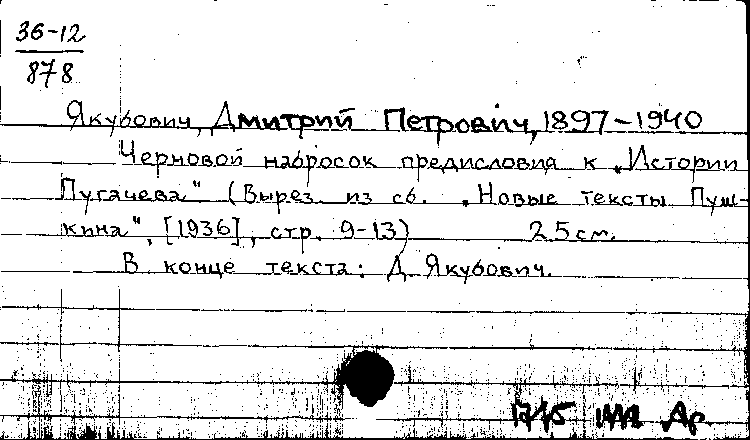 36-12
878
Якубович, Дмитрий Петрович, 1897-1940
Черновой набросок предисловия к „Истории
Пугачева" (Вырез. из сб. „Новые тексты Пуш-
кина", [1936], стр. 9-13) 25 см.
В конце текста: Д. Якубович.
Ар.